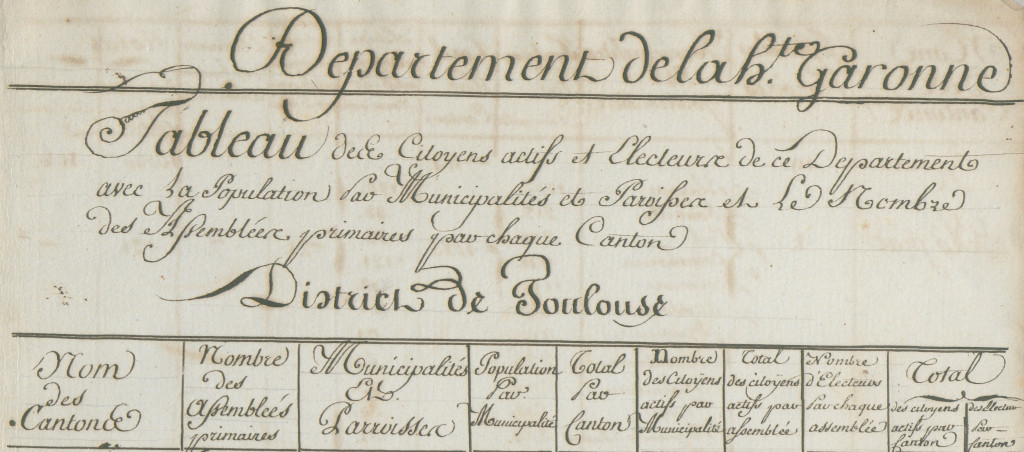 Departement de la h.te Garonne
Tableau des Citoyens actifs et Electeurs de ce Departement
avec La Population Par Municipalités et Paroisses et Le Nombre
des Assemblées primaires par chaque Canton
District de Toulouse
Nom
des
Cantons
Nombre
des
Assembleés
primaires
Municipalités
Et
Parroisses
Population
Par
Municipalité
Total
Par
Canton
Nombre
des Citoyens
actifs par
Municipalité
Total
des citoyens
actifs par
assemblée
Nombre
d'Electeurs
Par chaque
assemblée
Total
des citoyens
actifs par
Canton
des Electeurs
Par
Canton